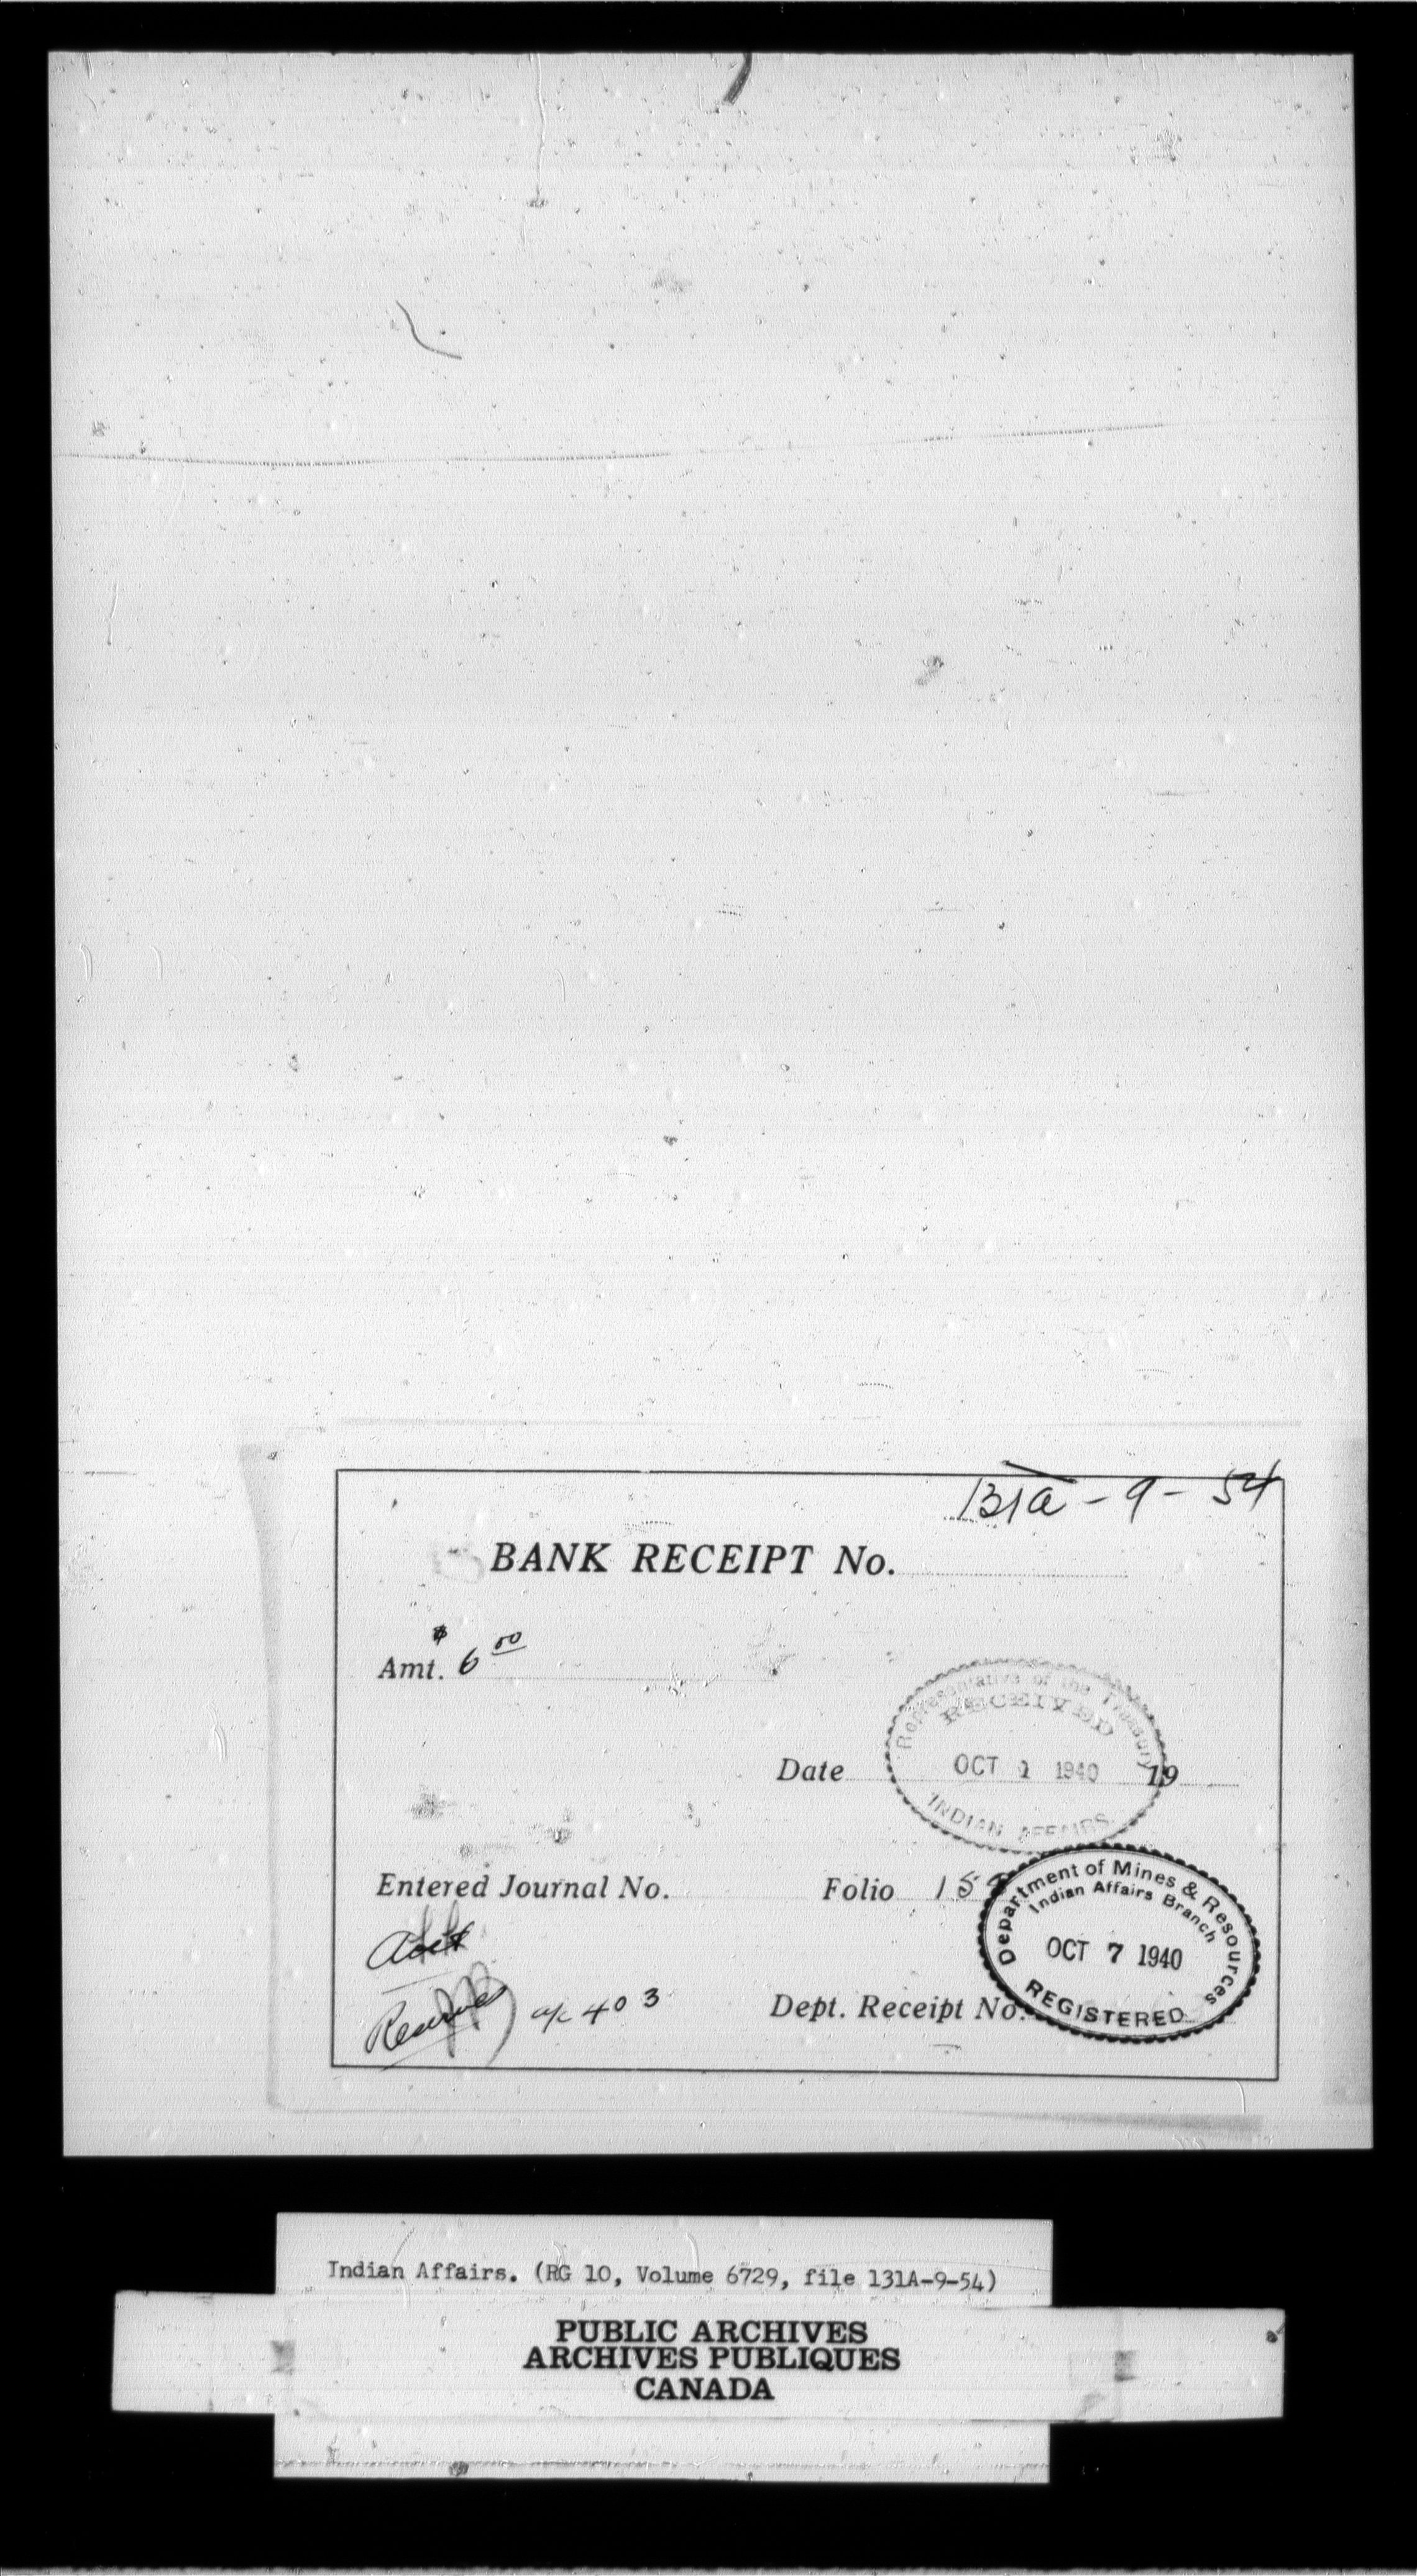 131a - 9 - 54
BANK RECEIPT No.
Amt. $6 00
Representative of the Treasury
RECEIVED
OCT 1 1940
INDIAN AFFAIRS
Date 19
Entered Journal No. Folio 15
Department of Mines & Resources
Indian Affairs Branch
OCT 7 1940
REGISTERED
a/c 403
Dept. Receipt No.
Indian Affairs. (RG 10, Volume 6729, file 131A-9-54)
PUBLIC ARCHIVES
ARCHIVES PUBLIQUES
CANADA